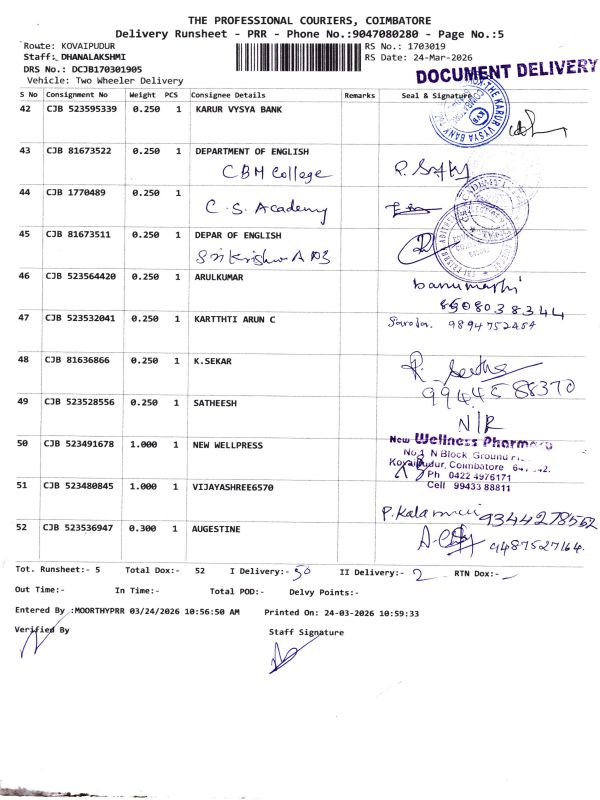 THE PROFESSIONAL COURIERS, COIMBATORE
Delivery Runsheet - PRR - Phone No.:9047080280 - Page No.:5
Route: KOVAIPUDUR
RS No.: 1703019
Staff: DHANALAKSHMI
RS Date: 24-Mar-2026
DRS No.: DCJB170301905
Vehicle: Two Wheeler Delivery
DOCUMENT DELIVERY
S No Consignment No Weight PCS Consignee Details Remarks Seal & Signature
42 CJB 523595339 0.250 1 KARUR VYSYA BANK
43 CJB 81673522 0.250 1 DEPARTMENT OF ENGLISH
CBM College
44 CJB 1770489 0.250 1
C.S. Academy
45 CJB 81673511 0.250 1 DEPAR OF ENGLISH
46 CJB 523564420 0.250 1 ARULKUMAR
banumathi
8508038344
47 CJB 523532041 0.250 1 KARTTHTI ARUN C
Saroja. 9894752454
48 CJB 81636866 0.250 1 K.SEKAR
9944588370
49 CJB 523528556 0.250 1 SATHEESH
N/R
50 CJB 523491678 1.000 1 NEW WELLPRESS
New Wellness Pharmacy
N Block Ground
Kovaipudur, Coimbatore
Ph 0422 4976171
Cell 99433 88811
51 CJB 523480845 1.000 1 VIJAYASHREE6570
P.Kalamani 9344278562
52 CJB 523536947 0.300 1 AUGESTINE
9487527164.
Tot. Runsheet:- 5 Total Dox:- 52 I Delivery:- 50 II Delivery:- 2 RTN Dox:-
Out Time:- In Time:- Total POD:- Delvy Points:-
Entered By :MOORTHYPRR 03/24/2026 10:56:50 AM Printed On: 24-03-2026 10:59:33
Verified By Staff Signature